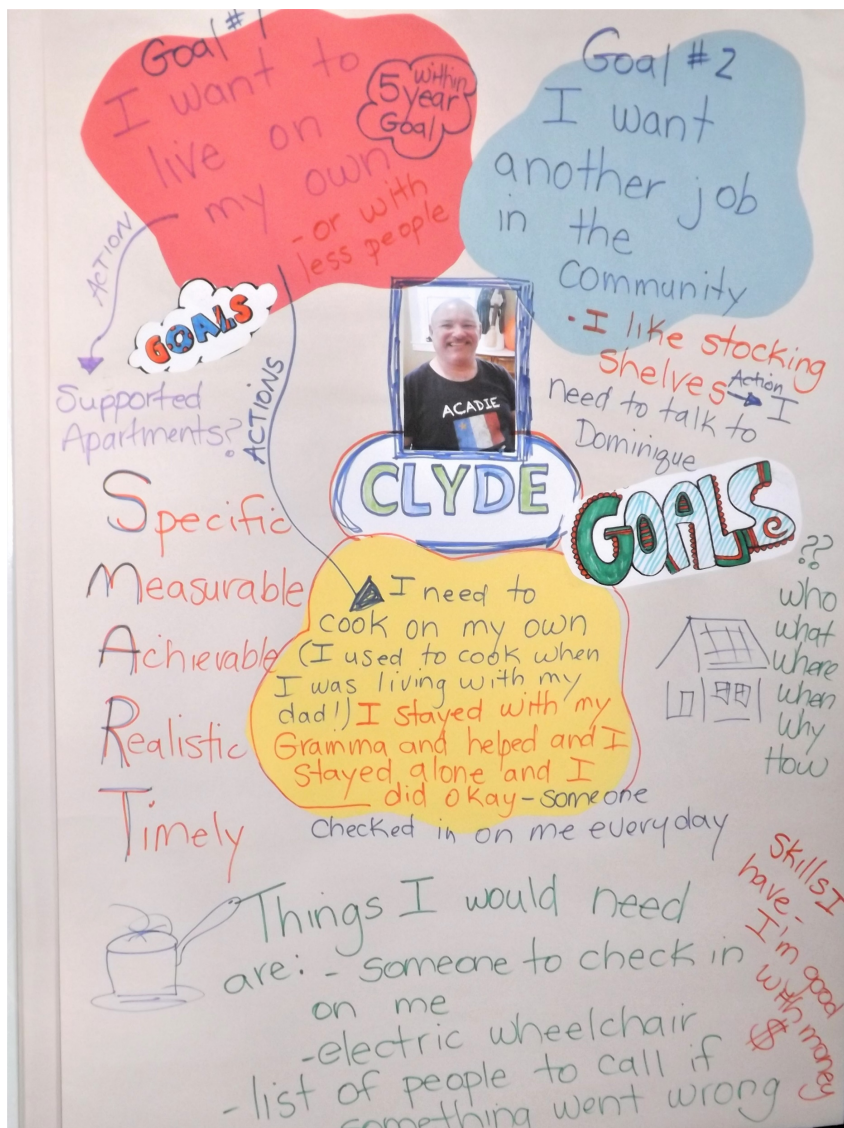 Goal #1
I want to
live on
my own
- or with
less people
within
5 year
Goal
Goal #2
I want
another job
in the
community
- I like stocking
shelves
Action
I
need to talk to
Dominique
ACTION
Supported
Apartments?
GOALS
ACTIONS
ACADIE
CLYDE
GOALS
Specific
Measurable
Achievable
Realistic
Timely
I need to
cook on my own
(I used to cook when
I was living with my
dad!) I stayed with my
Gramma and helped and I
stayed alone and I
did okay - someone
checked in on me everyday
??
who
what
where
when
why
How
Things I would need
are: - someone to check in
on me
- electric wheelchair
- list of people to call if
something went wrong
Skills I
have -
I'm good
with money
$